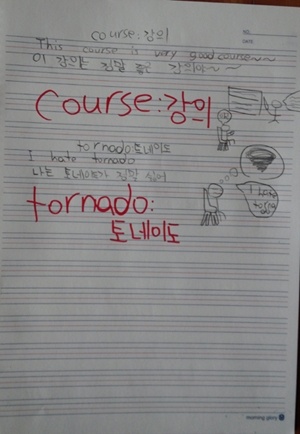 course:강의
This course is very good course~~
이 강의는 정말 좋은 강의야~~
Course:강의
tornado:토네이도
I hate tornado
나는 토네이도가 정말 싫어
I hate
torna
tornado:
토네이도
morning glory